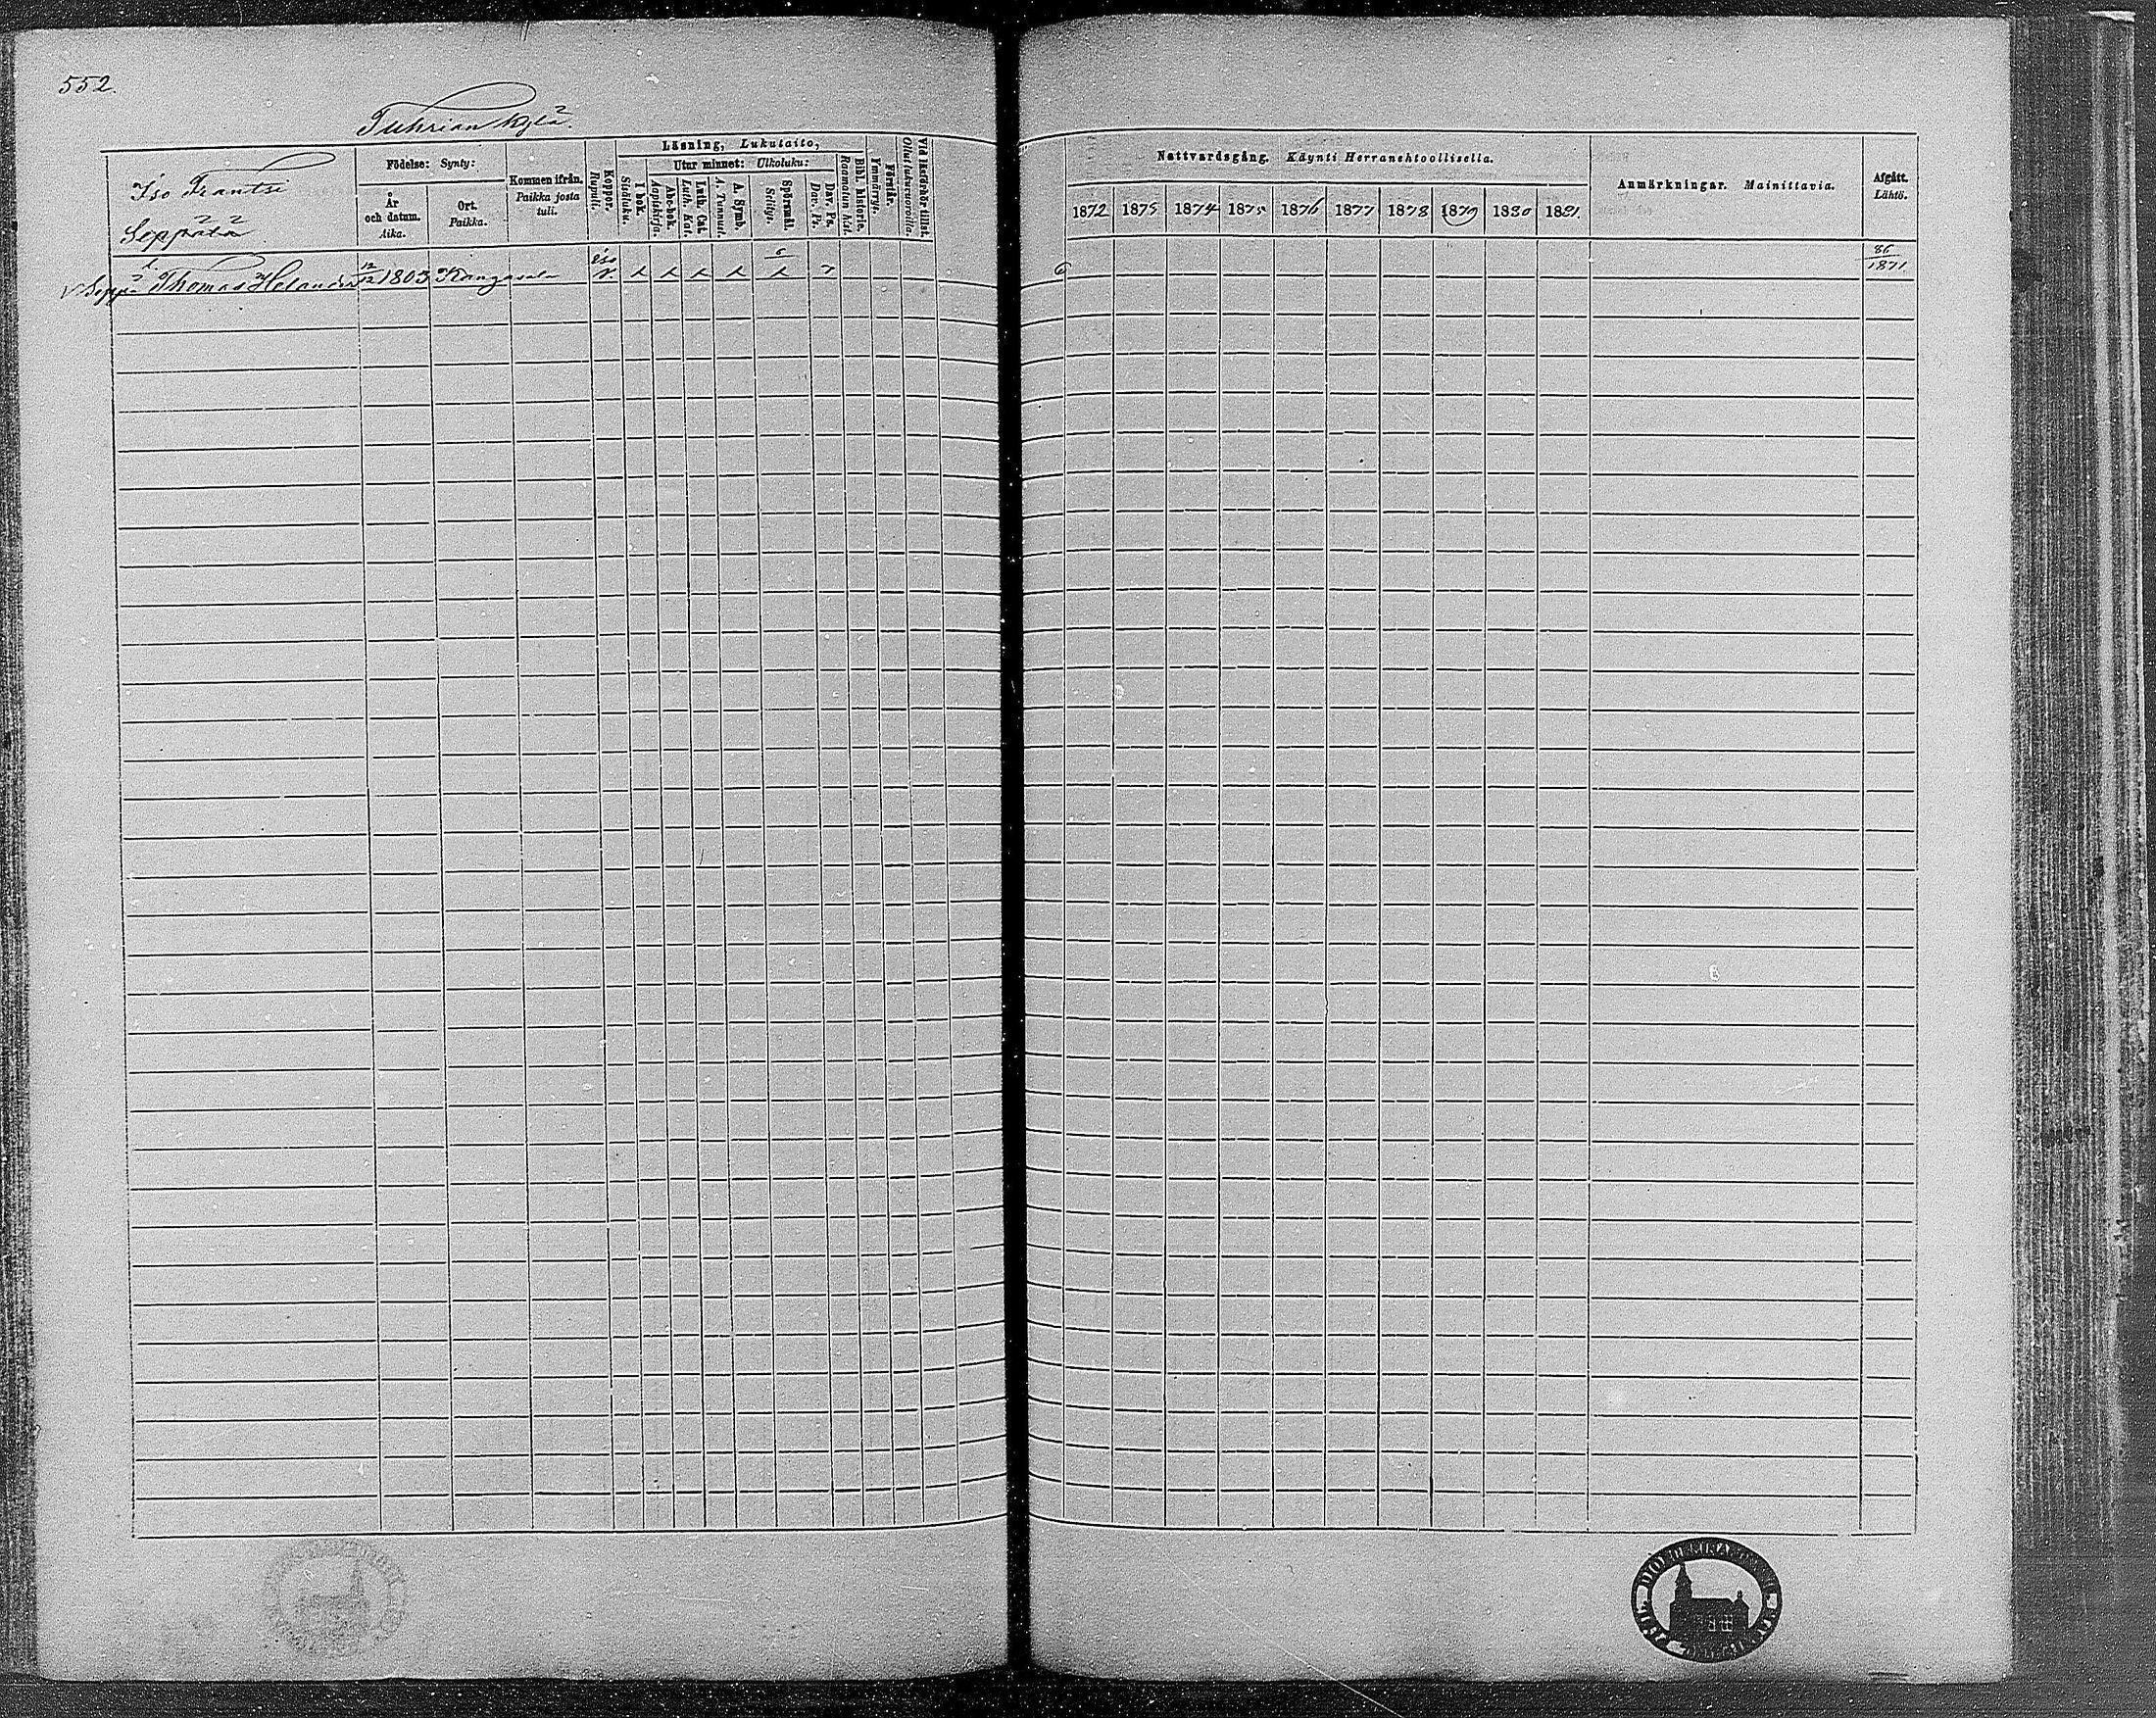 552.
Tuhrian kylä.
Iso Frantsi
Seppälä
Födelse: Synty:
År och datum. Aika.
Ort. Paikka.
Kommen ifrån. Paikka josta tuli.
Koppor. Rupuli.
Läsning, Lukutaito,
I bok. Sisäluku.
Utur minnet: Ulkoluku:
Abc-bok. Aapiskirja.
Luth. Cat. Luth. Kat.
A. Symb. A. Tunnust.
Spörsmål. Selitys.
Dav. Ps. Dav. Ps.
Bibl. historie. Raamatun hist.
Förstår. Ymmärrys.
Vid läsförhör tillst. Ollut lukuvuoroilla.
Nattvardsgång. Käynti Herranehtoollisella.
1872 1875 1874 1875 1876 1877 1878 1879 1880 1881
Anmärkningar. Mainittavia.
Afgått. Lähtö.
v Seppä Thomas Helander 12/12 1803 Kangasala
6
86/1871